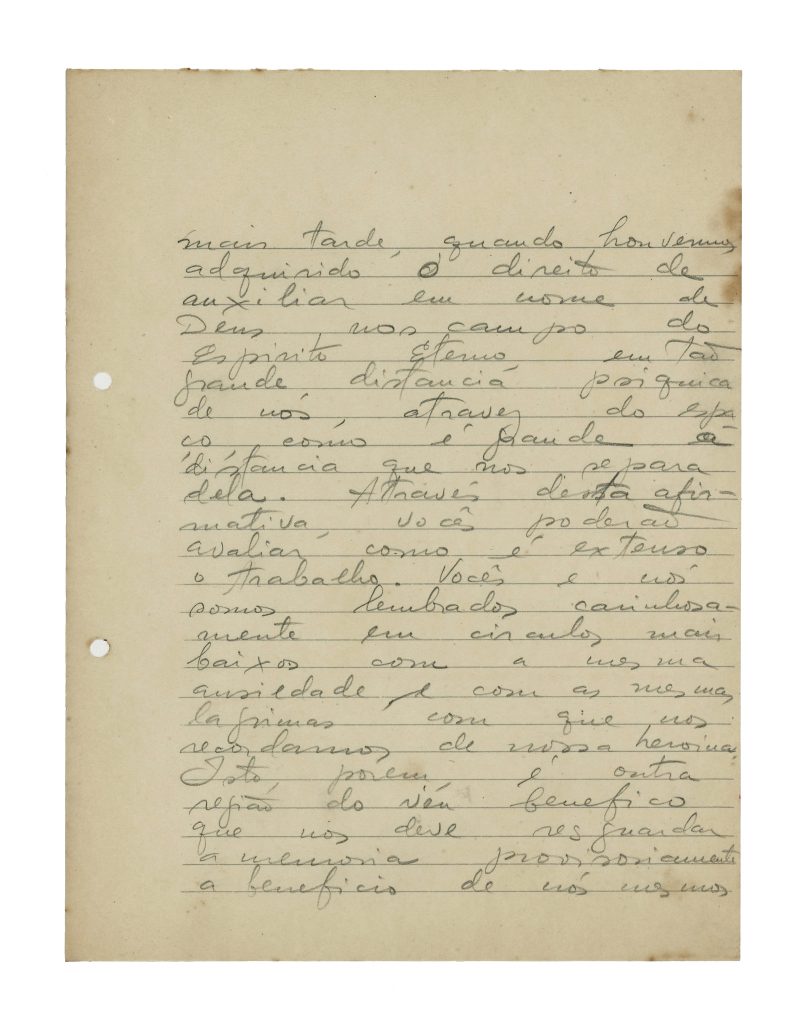 mais tarde, quando houvermos
adquirido o direito de
auxiliar em nome de
Deus, nos campo do
Espirito Eterno em tão
grande distanciá psiquica
de nós, atravez do espa-
ço, como é grande a
distancia que nos separa
dela. Através desta afir-
mativa, vocês poderão
avaliar como é extenso
o trabalho. Vocês e nós
somos lembrados carinhosa-
mente em circulos mais
baixos com a mesma
ansiedade e com as mesmas
lagrimas com que nos
recordamos de nossa heroina.
Isto, porém, é outra
região do véu benefico
que nos deve resguardar
a memoria provisoriamente
a beneficio de nós mesmos